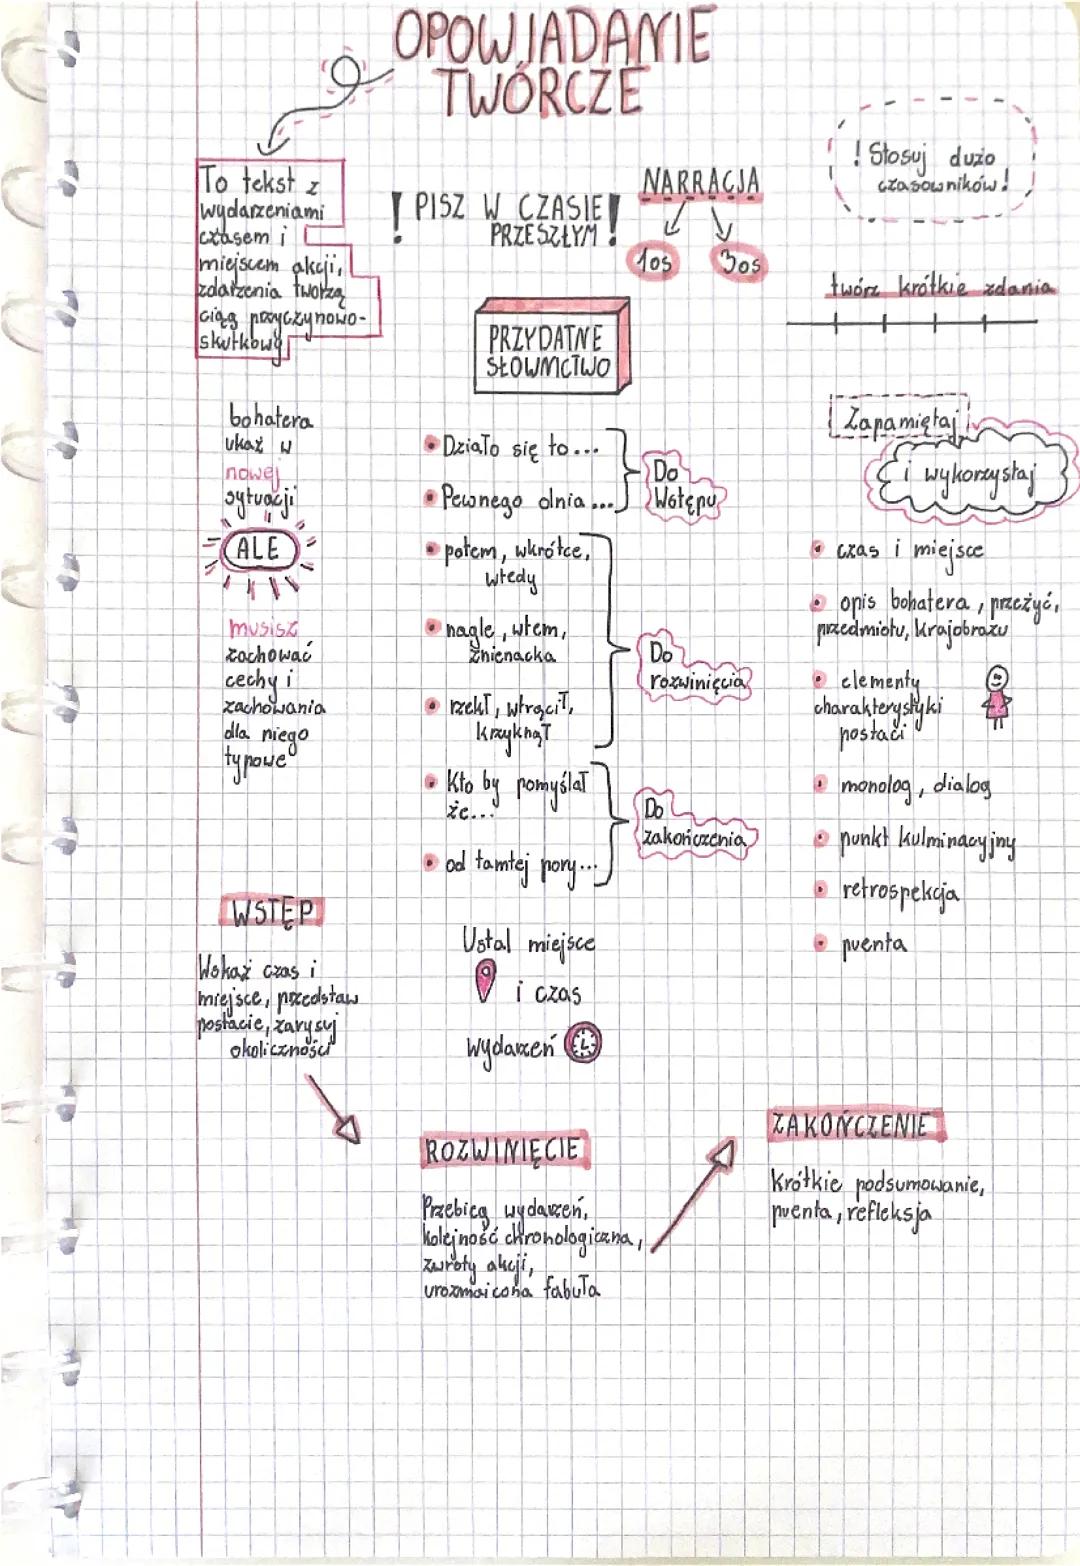 OPOWIADANIE
TWÓRCZE
To tekst z
wydarzeniami
czasem i
miejscem akcji,
zdarzenia tworzą
ciąg przyczynowo-
skutkowy
! PISZ W CZASIE !
PRZESZŁYM
NARRACJA
1os
3os
! Stosuj dużo
czasowników!
twórz krótkie zdania
PRZYDATNE
SŁOWNICTWO
bohatera
ukaż w
nowej
sytuacji
ALE
musisz
zachować
cechy i
zachowania
dla niego
typowe
• Działo się to...
• Pewnego dnia ...
Do
Wstępu
• potem, wkrótce,
wtedy
• nagle, wtem,
znienacka
• rzekł, wtrącił,
krzyknął
Do
rozwinięcia
• Kto by pomyślał
że...
• od tamtej pory...
Do
zakończenia
Zapamiętaj
i wykorzystaj
• czas i miejsce
• opis bohatera, przeżyć,
przedmiotu, krajobrazu
• elementy
charakterystyki
postaci
• monolog, dialog
• punkt kulminacyjny
• retrospekcja
• puenta
WSTĘP
Wskaż czas i
miejsce, przedstaw
postacie, zarysuj
okoliczności
Ustal miejsce
i czas
wydarzeń
ROZWINIĘCIE
Przebieg wydarzeń,
kolejność chronologiczna,
zwroty akcji,
urozmaicona fabuła
ZAKOŃCZENIE
Krótkie podsumowanie,
puenta, refleksja